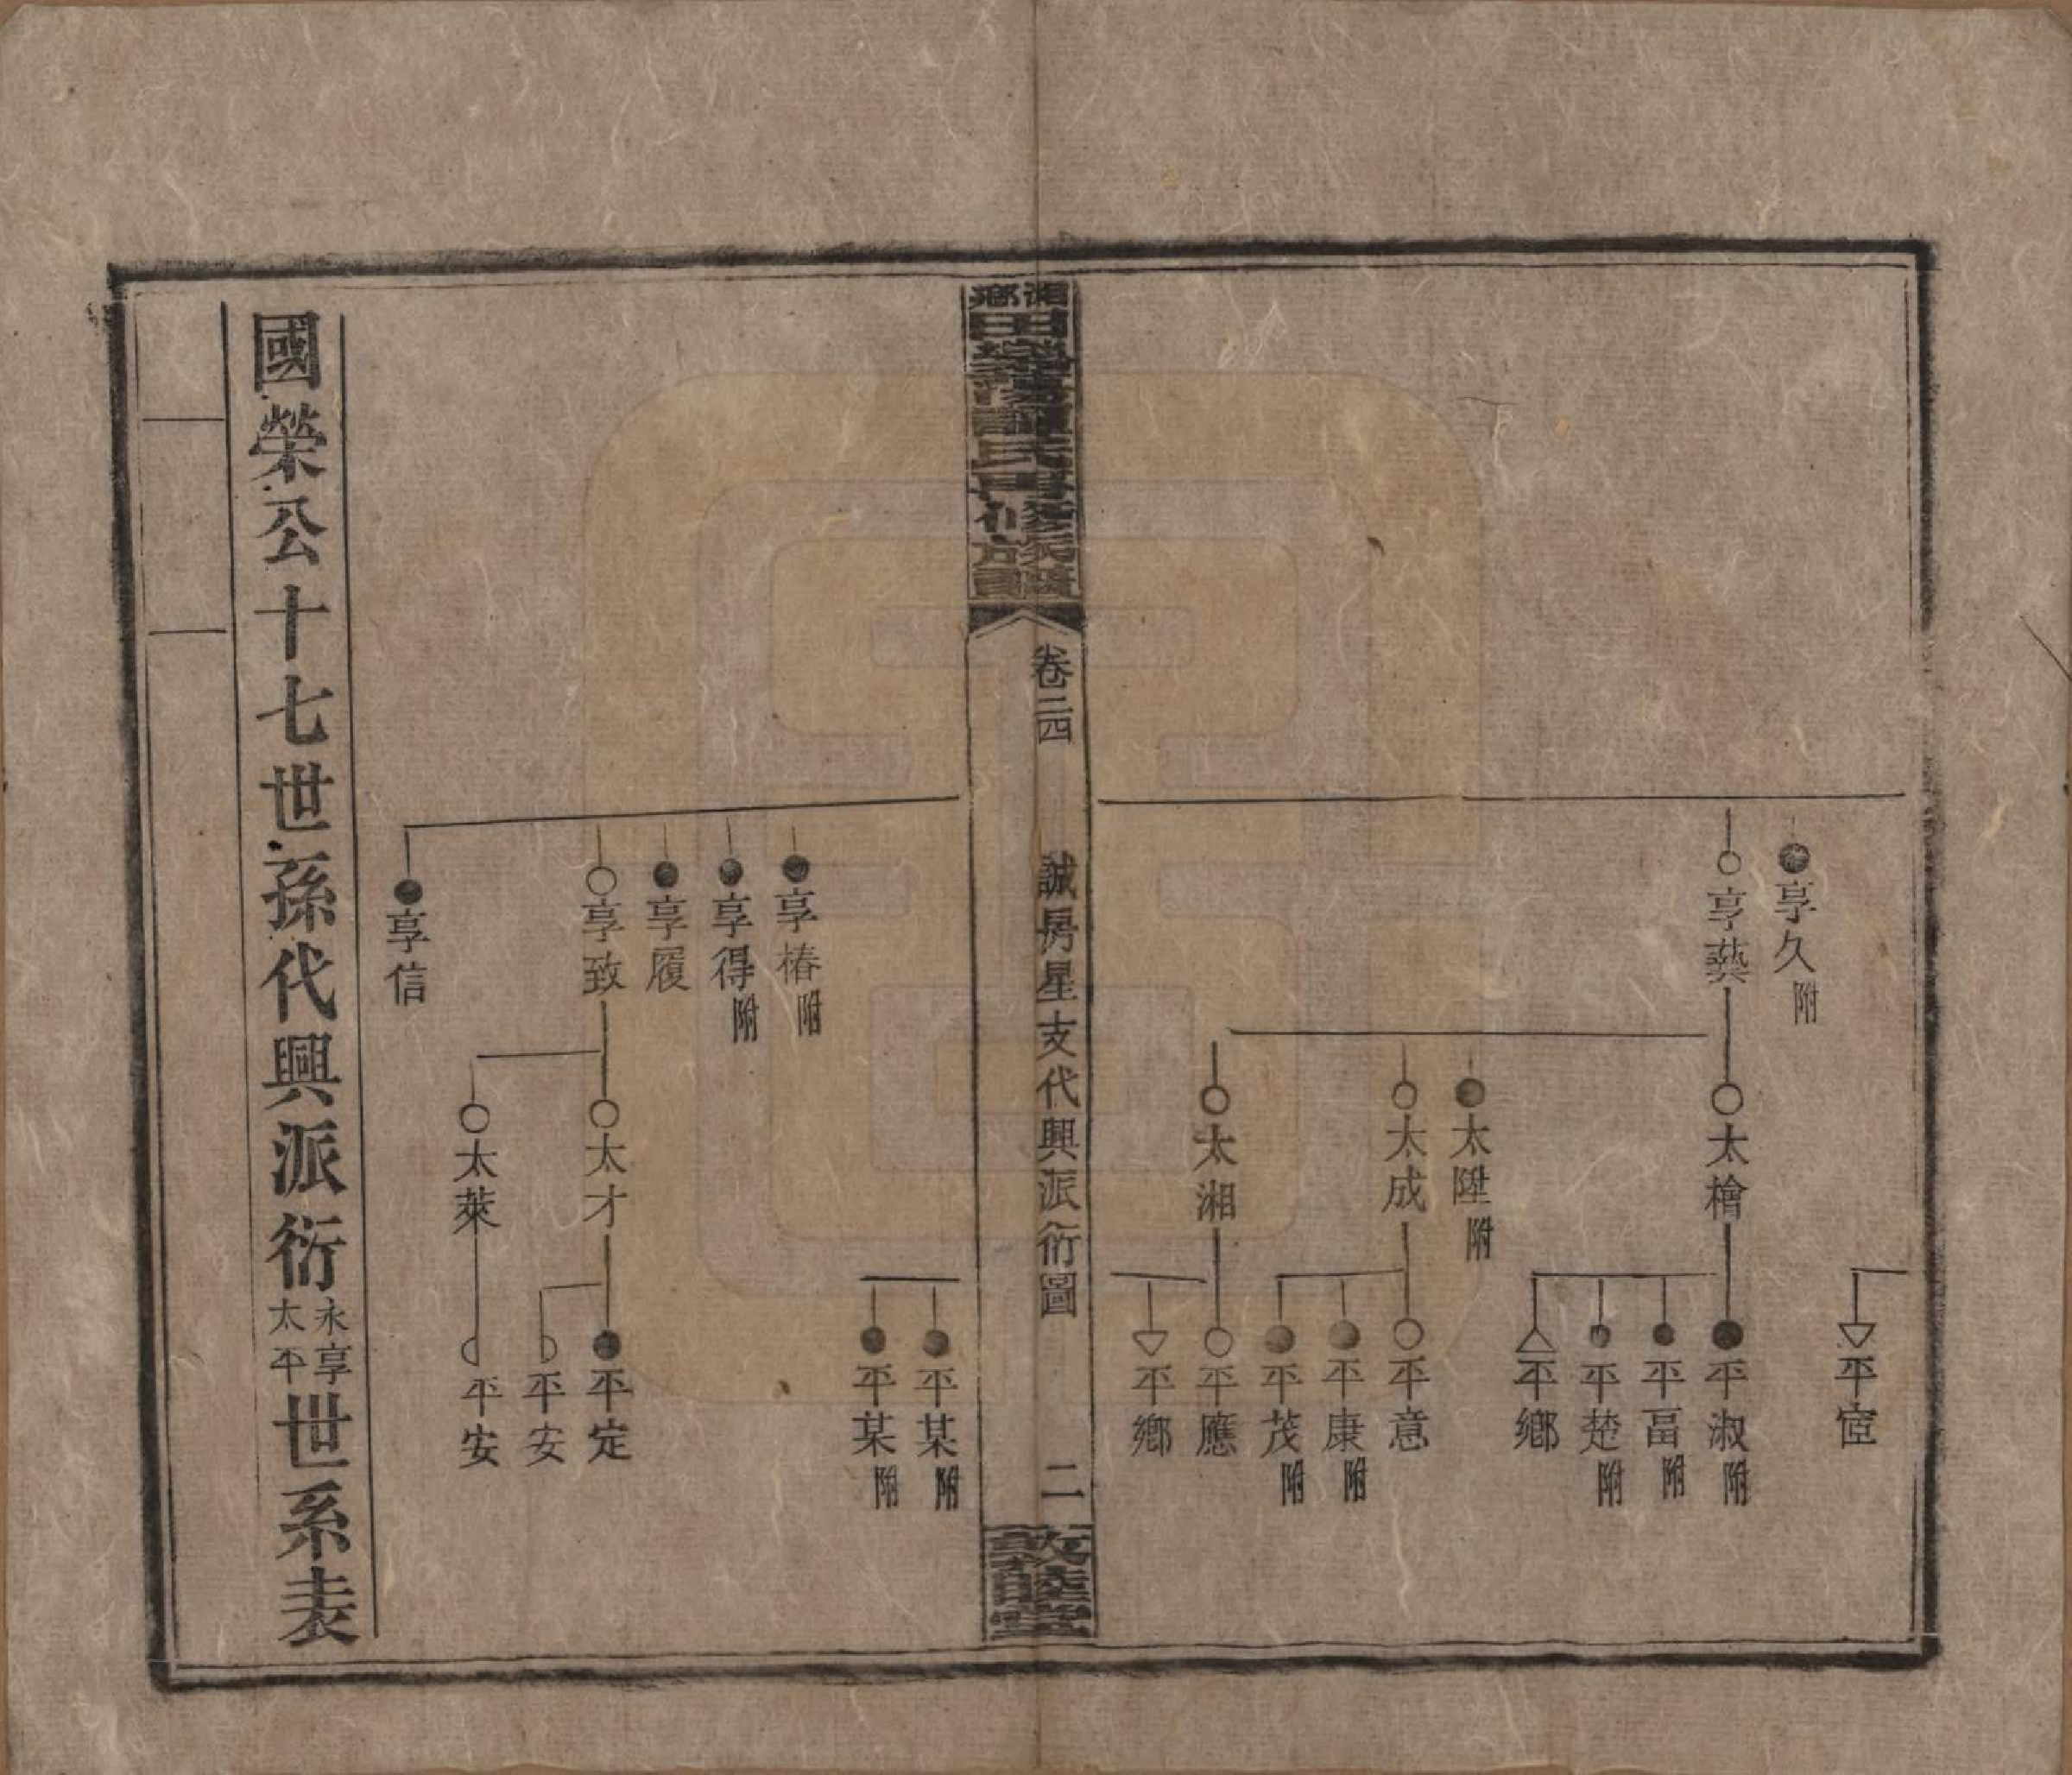 享久附
享藝
太檜
太陞附
太成
太湘
平宧
平淑附
平畐附
平楚附
平鄉
平意
平康附
平茂附
平應
平鄉
湘鄉田邊譚氏再修族譜
卷二四
誠房星支代興派衍圖
二
敦睦堂
平某附
平某附
享椿附
享得附
享履
享致
享信
太才
太萊
平定
平安
平安
國榮公十七世孫代興派衍永享太平世系表